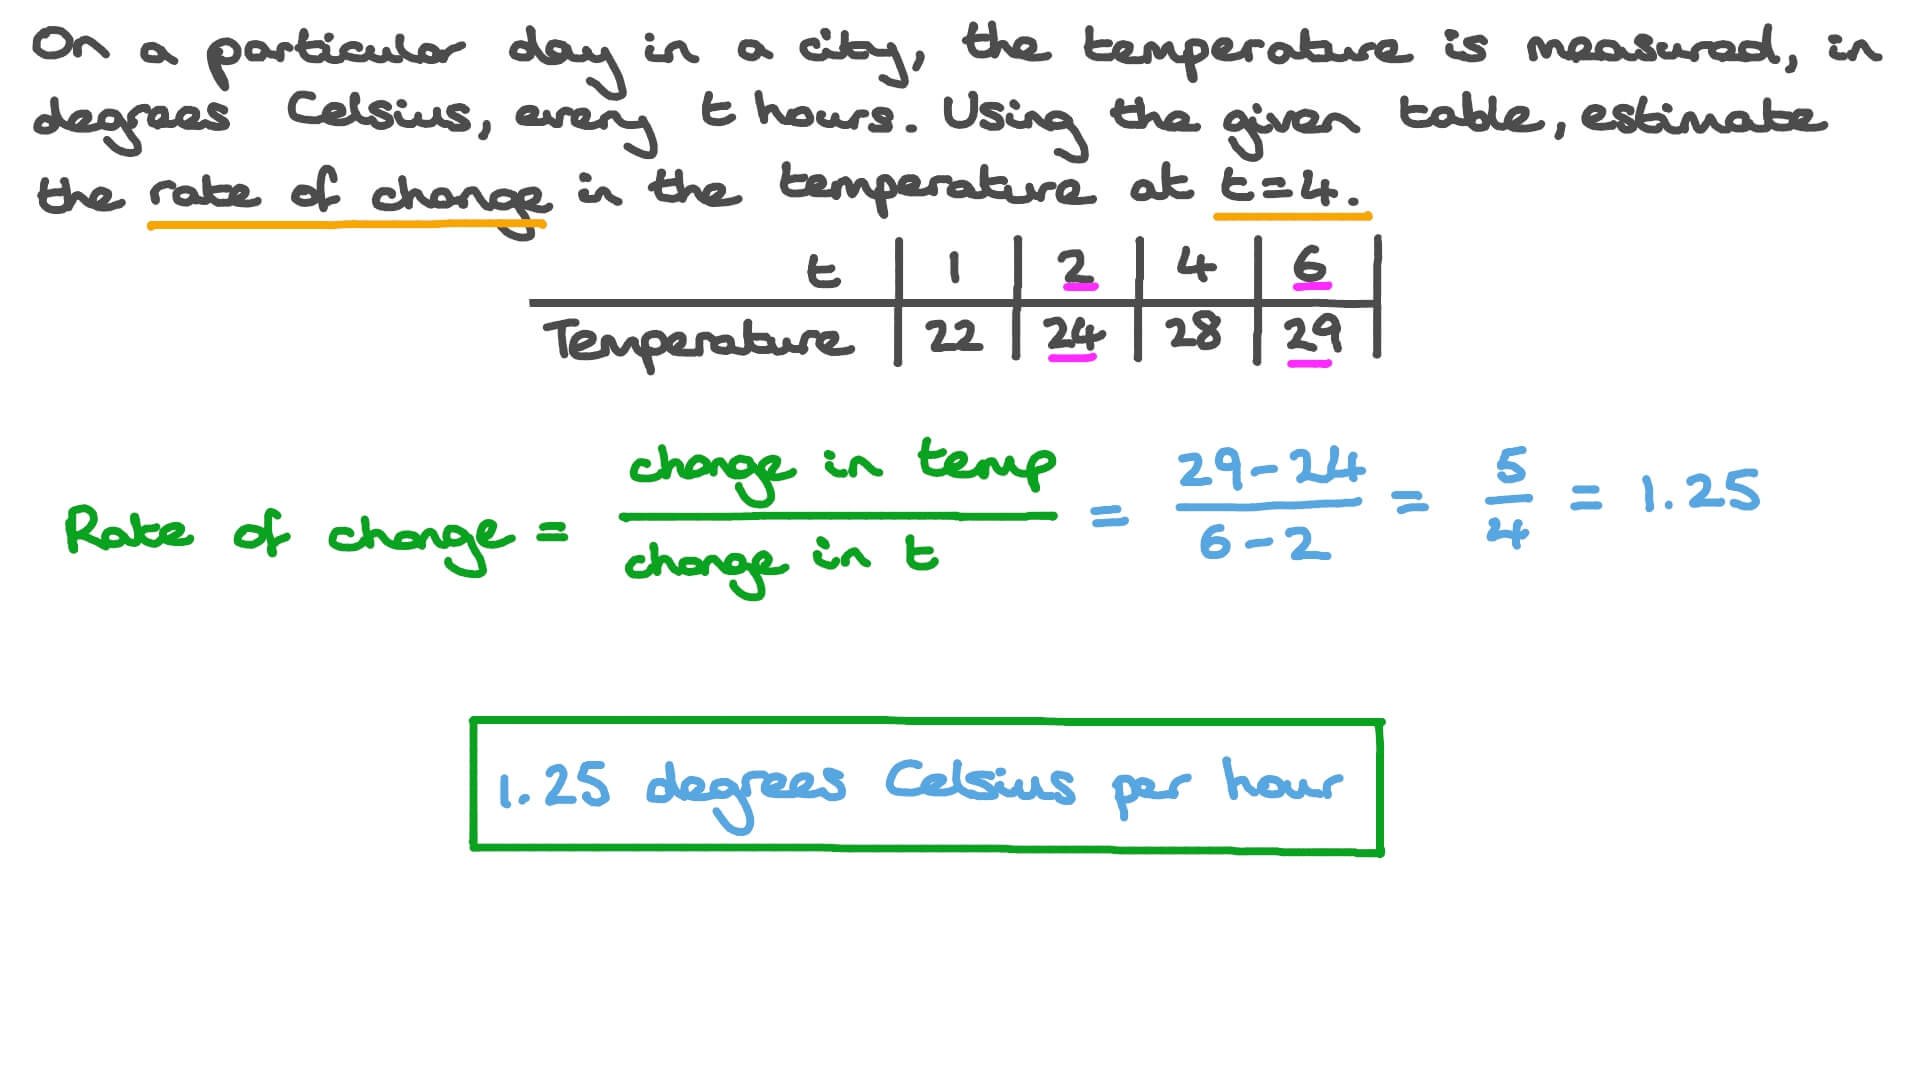 On a particular day in a city, the temperature is measured, in
degrees Celsius, every t hours. Using the given table, estimate
the rate of change in the temperature at t=4.
t | 1 | 2 | 4 | 6 |
Temperature | 22 | 24 | 28 | 29 |
Rate of change = change in temp / change in t = 29-24 / 6-2 = 5/4 = 1.25
1.25 degrees Celsius per hour